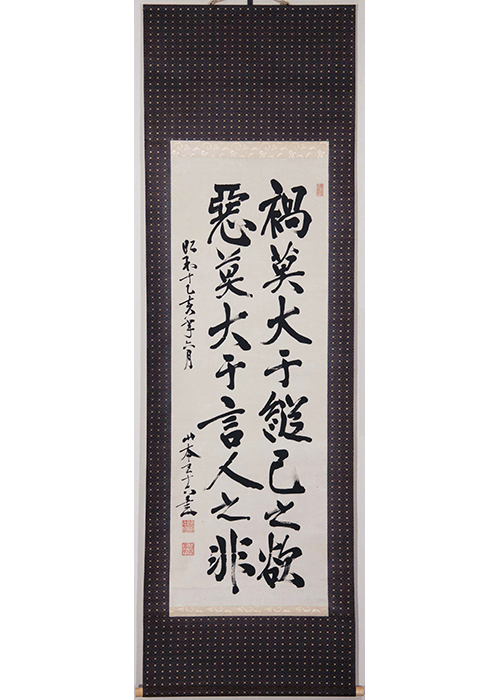 禍莫大于縱己之欲
惡莫大于言人之非
昭和十乙亥年六月
山本五十六書